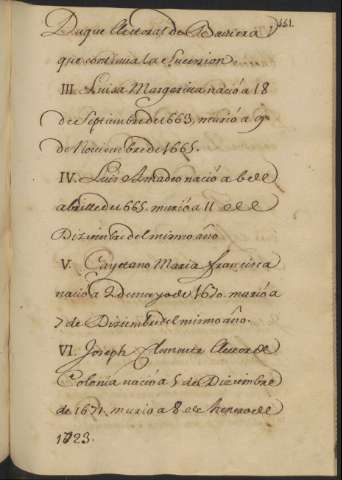 461.
Duque Elector de Baviera
que continua la sucesion
III. Luisa Margarita nació a 18
de Septiembre de 663. murió a 9
de Noviembre de 1665.
IV. Luis Amadeo nació a 6 de
abrill de 665. murió a 11 de
Diziembre del mismo año
V. Cayetano Maria Francisca
nació a 2 de mayo de 1670. murió a
7 de Diziembre del mismo año.
VI. Joseph Clemente Elector de
Colonia nació a 5 de Diziembre
de 1671. murio a 8 de henero de
1723.